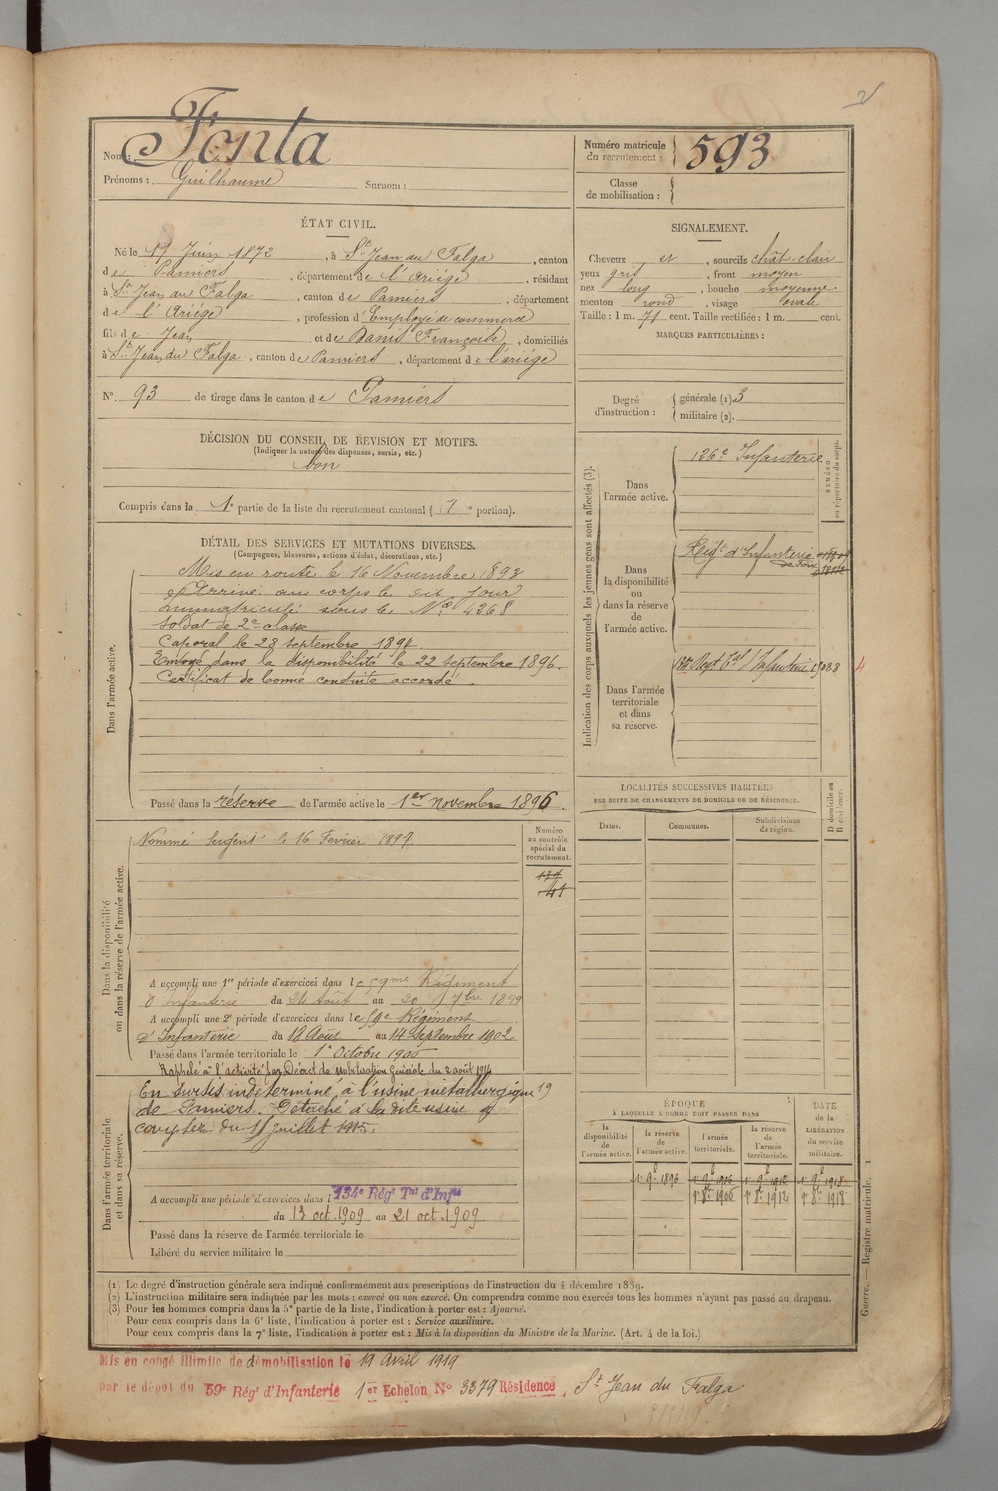 Nom : Fonta
Prénoms : Guilhaume Surnom :
Numéro matricule du recrutement : 593
Classe de mobilisation :
ÉTAT CIVIL.
Né le 17 Juin 1872, à St Jean du Falga, canton
de Pamiers, département de l'Ariége, résidant
à St Jean du Falga, canton de Pamiers, département
de l'Ariége, profession d'Employé de commerce
fils de Jean et de Françoise, domiciliés
à St Jean du Falga, canton de Pamiers, département de l'ariége
N° 93 de tirage dans le canton de Pamiers
SIGNALEMENT.
Cheveux et, sourcils chât-clair
yeux gris, front moyen
nez long, bouche moyenne.
menton rond, visage ovale
Taille : 1 m. 71 cent. Taille rectifiée : 1 m. cent.
MARQUES PARTICULIÈRES :
Degré d'instruction : générale (1). 3
militaire (2).
DÉCISION DU CONSEIL DE REVISION ET MOTIFS.
(Indiquer la nature des dispenses, sursis, etc.)
bon
Compris dans la 1e partie de la liste du recrutement cantonal ( portion).
DÉTAIL DES SERVICES ET MUTATIONS DIVERSES.
(Campagnes, blessures, actions d'éclat, décorations, etc.)
Dans l'armée active.
Mis en route le 16 Novembre 1893
Arrivé au corps le dit jour
immatriculé sous le N° 4268
Soldat de 2e classe
Caporal le 28 septembre 1894
Envoyé dans la disponibilité le 22 septembre 1896.
Certificat de bonne conduite accordé.
Passé dans la réserve de l'armée active le 1er novembre 1896.
Indication des corps auxquels les jeunes gens sont affectés (3).
NUMÉRO au répertoire du corps.
Dans l'armée active.
126e Infanterie
Dans la disponibilité ou dans la réserve de l'armée active.
Régt d'Infanterie
de Foix
Dans l'armée territoriale et dans sa réserve.
LOCALITÉS SUCCESSIVES HABITÉES
PAR SUITE DE CHANGEMENTS DE DOMICILE OU DE RÉSIDENCE.
Dates. Communes. Subdivisions de région. D domicile ou R résidence.
Dans la disponibilité ou dans la réserve de l'armée active.
Nommé Sergent le 16 Février 1897
Numéro au contrôle spécial du recrutement.
41
A accompli une 1re période d'exercices dans le 59me Régiment
d'Infanterie du 24 août au 20 7bre 1899
A accompli une 2e période d'exercices dans le 59e Régiment
d'Infanterie du 18 Août au 14 Septembre 1902
Passé dans l'armée territoriale le 1er Octobre 1906
Rappelé à l'activité par Décret de Mobilisation Générale du 2 août 1914
Dans l'armée territoriale et dans sa réserve.
En sursis indéterminé à l'usine métallurgique
de Pamiers. Détaché à la dite usine à
compter du 11 juillet 1915.
A accompli une période d'exercices dans l 134e Régt Tal d'Infie
du 13 oct. 1909 au 21 oct. 1909
Passé dans la réserve de l'armée territoriale le
Libéré du service militaire le
ÉPOQUE
À LAQUELLE L'HOMME DOIT PASSER DANS
la disponibilité de l'armée active. la réserve de l'armée active. l'armée territoriale. la réserve de l'armée territoriale. DATE de la LIBÉRATION du service militaire.
1r 9b 1896 1r 9b 1906 1r 9b 1912 1r 9b 1918
1r 8b 1906 1r 8b 1912 1r 8b 1918
Guerre. — Registre matricule. 1
(1) Le degré d'instruction générale sera indiqué conformément aux prescriptions de l'instruction du 4 décembre 1889.
(2) L'instruction militaire sera indiquée par les mots : exercé ou non exercé. On comprendra comme non exercés tous les hommes n'ayant pas passé au drapeau.
(3) Pour les hommes compris dans la 5e partie de la liste, l'indication à porter est : Ajourné.
Pour ceux compris dans la 6e liste, l'indication à porter est : Service auxiliaire.
Pour ceux compris dans la 7e liste, l'indication à porter est : Mis à la disposition du Ministre de la Marine. (Art. 4 de la loi.)
Mis en congé illimité de démobilisation le 19 avril 1919
par le dépôt du 59e Régt d'Infanterie 1er Echelon N° 3379 Résidence, St Jean du Falga